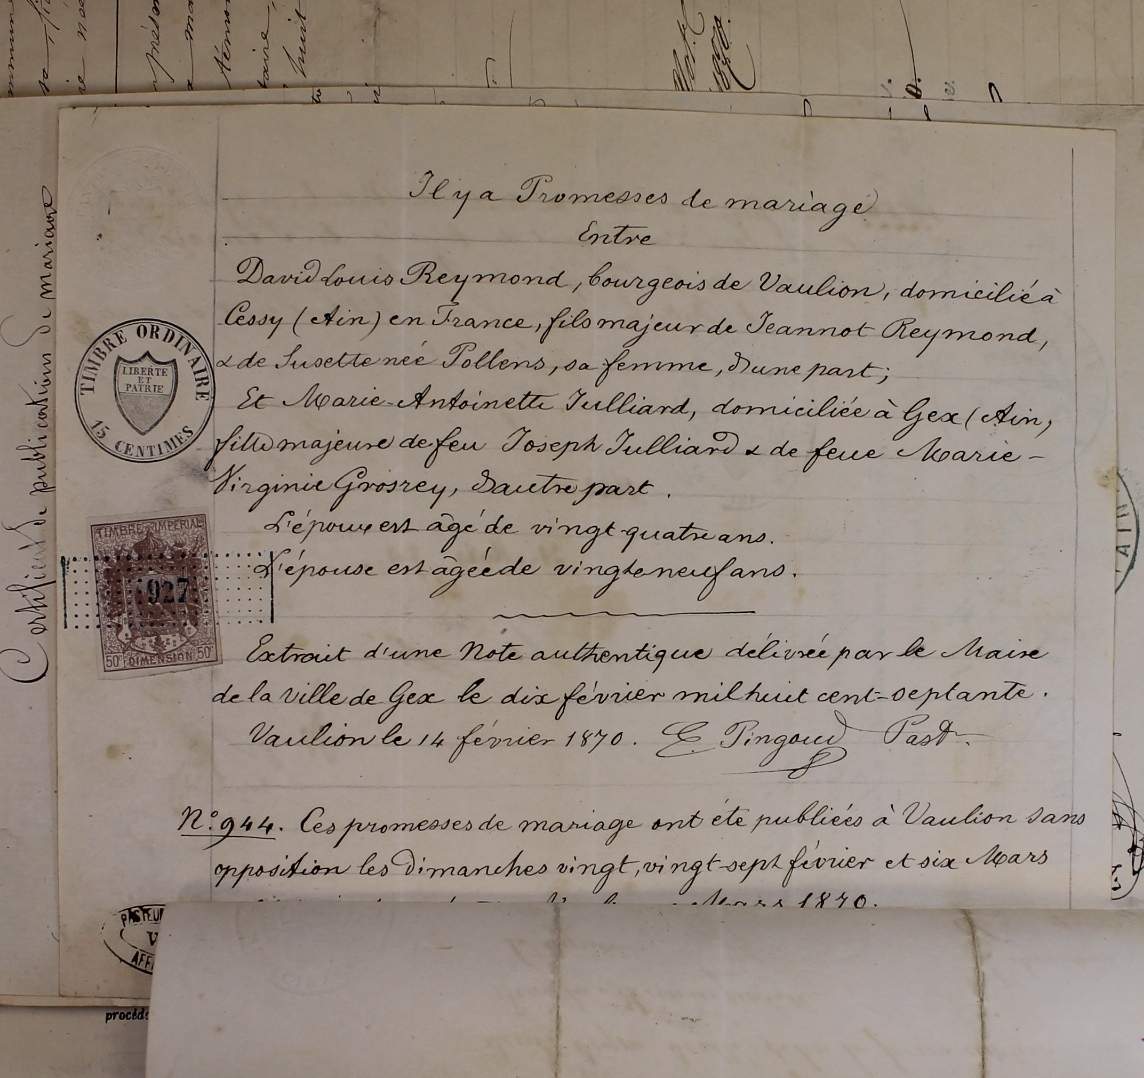 Il y a Promesses de mariage
Entre
David Louis Reymond, bourgeois de Vaulion, domicilié à
Cessy (Ain) en France, fils majeur de Jeannot Reymond,
& de Susette née Pollens, sa femme, d'une part;
Et Marie-Antoinette Julliard, domiciliée à Gex (Ain,
fille majeure de feu Joseph Julliard & de feue Marie-
Virginie Grosrey, d'autre part.
L'époux est âgé de vingt quatre ans.
L'épouse est âgée de vingt neuf ans.
Extrait d'une Note authentique délivrée par le Maire
de la ville de Gex le dix février mil huit cent-septante.
Vaulion le 14 février 1870. E. Pingoud Past.
No. 944. Ces promesses de mariage ont été publiées à Vaulion sans
opposition les Dimanches vingt, vingt-sept février et six Mars
Mars 1870.
Certificat de publication de mariage
TIMBRE ORDINAIRE
LIBERTE
ET
PATRIE
15 CENTIMES
TIMBRE IMPÉRIAL
927
50c DIMENSION 50c
PASTEU
V
AFF
procéd
AIN